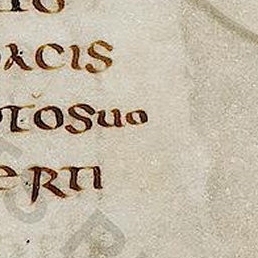 to
acis
tosuo
erti